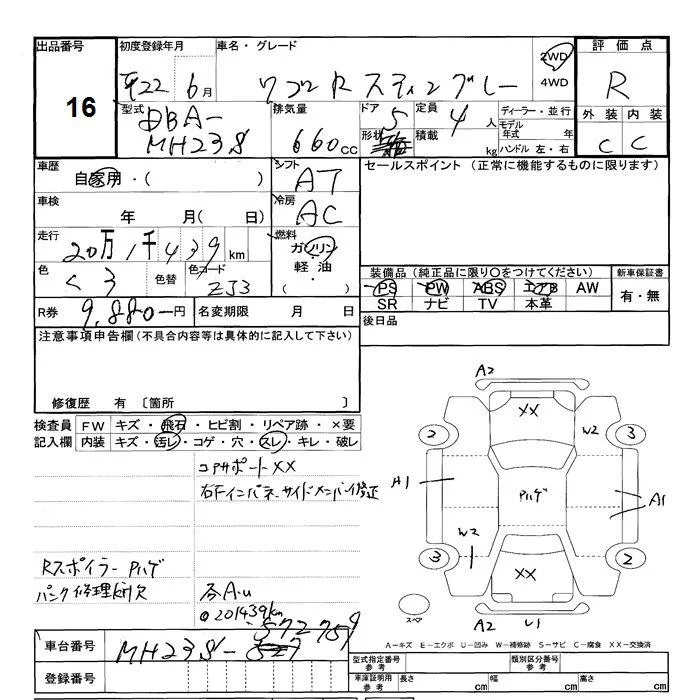 出品番号 初度登録年月 車名・グレード 評価点
16
平22年6月 ワゴンR スティングレー 2WD 4WD R
型式 排気量 ドア 定員 ディーラー・並行 外装 内装
DBA-MH23S 660cc 5 4人 モデル年式 年 C C
形状 積載 kg ハンドル 左・右
車歴 シフト セールスポイント (正常に機能するものに限ります)
自家用・( ) AT
車検 冷房
年 月( 日) AC
走行 燃料
20万1千439km ガソリン・軽油・( )
色 色替 色コード 装備品(純正品に限り○をつけてください) 新車保証書
クロ ZJ3 PS PW ABS エアB AW 有・無
SR ナビ TV 本革
R券 9,880-円 名変期限 月 日 後日品
注意事項申告欄(不具合内容等は具体的に記入して下さい)
修復歴 有 〔箇所 〕
検査員記入欄 FW キズ・飛石・ヒビ割・リペア跡・×要
内装 キズ・汚レ・コゲ・穴・スレ・キレ・破レ
コアサポートXX
右Fインパネ、サイドメンバー修正
Rスポイラー Pハゲ
パンク修理剤欠
@201439km
A2
XX
2 W2 3
A1 Pハゲ A1
W2
3 XX 2
スペア A2 U1
車台番号 MH23S-572759
登録番号
A−キズ E−エクボ U−凹み W−補修跡 S−サビ C−腐食 XX−交換済
型式指定番号参考 類別区分番号参考
車庫証明用参考 長さ cm 幅 cm 高さ cm